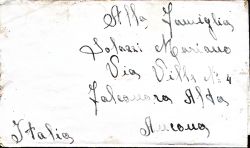 Alla Famiglia
Solazzi Mariano
Via Villa N. 4
Falconara Alta
Ancona
Italia